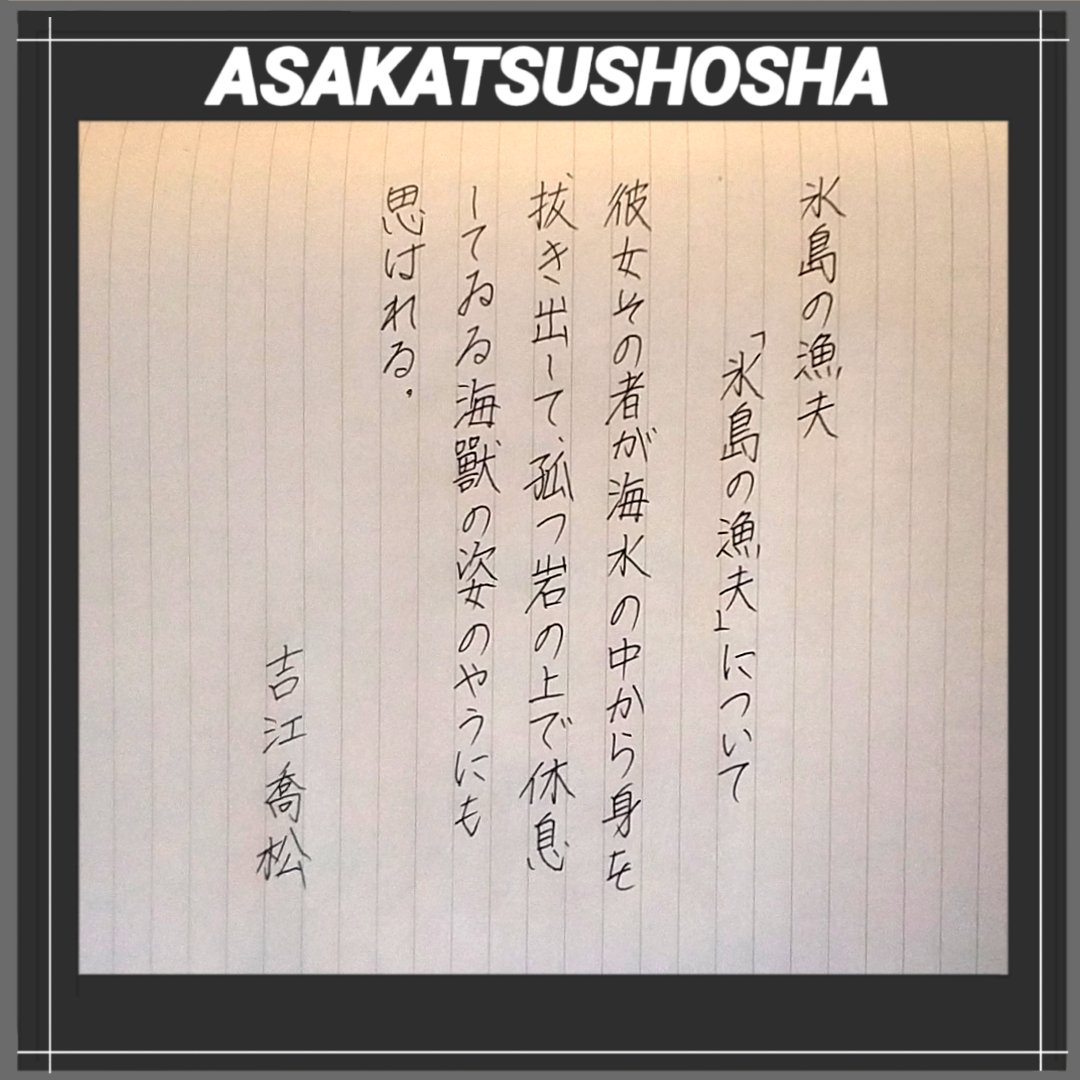 ASAKATSUSHOSHA
氷島の漁夫
「氷島の漁夫」について
彼女その者が海水の中から身を
抜き出して、孤つ岩の上で休息
してゐる海獸の姿のやうにも
思はれる。
吉江喬松